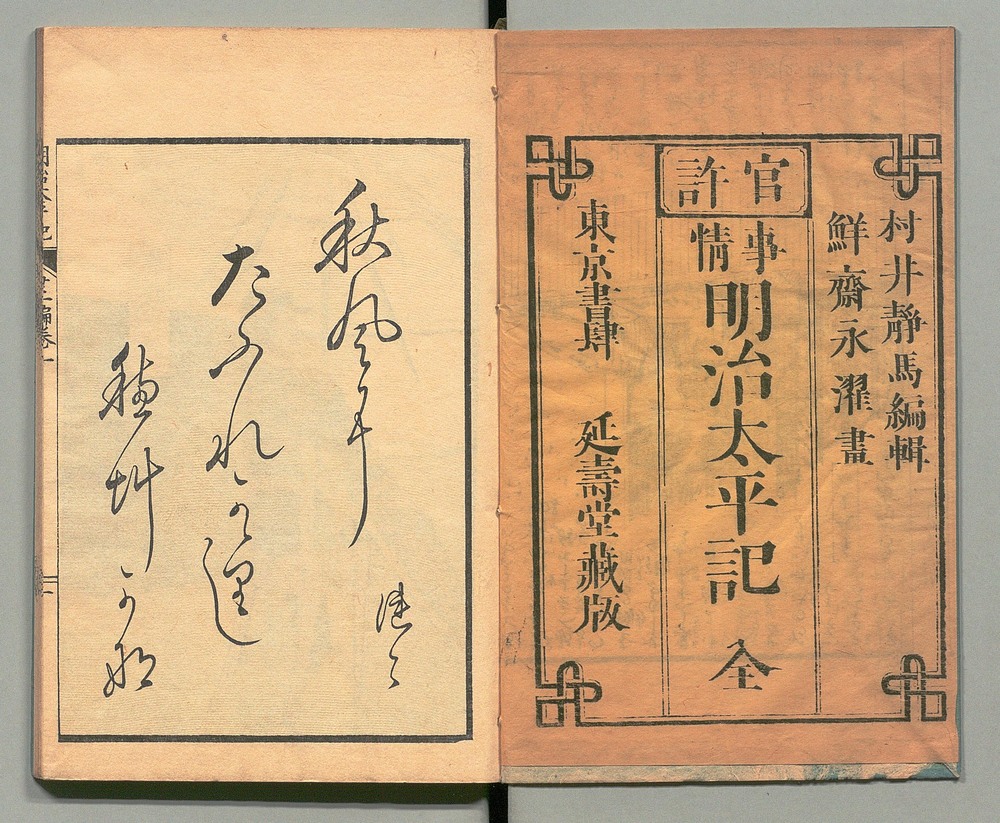 村井靜馬編輯
鮮齋永濯畫
官許
事情
明治太平記 全
東京書肆 延壽堂藏版
秋風耳
たふれ
穂艸可那
明治太平記